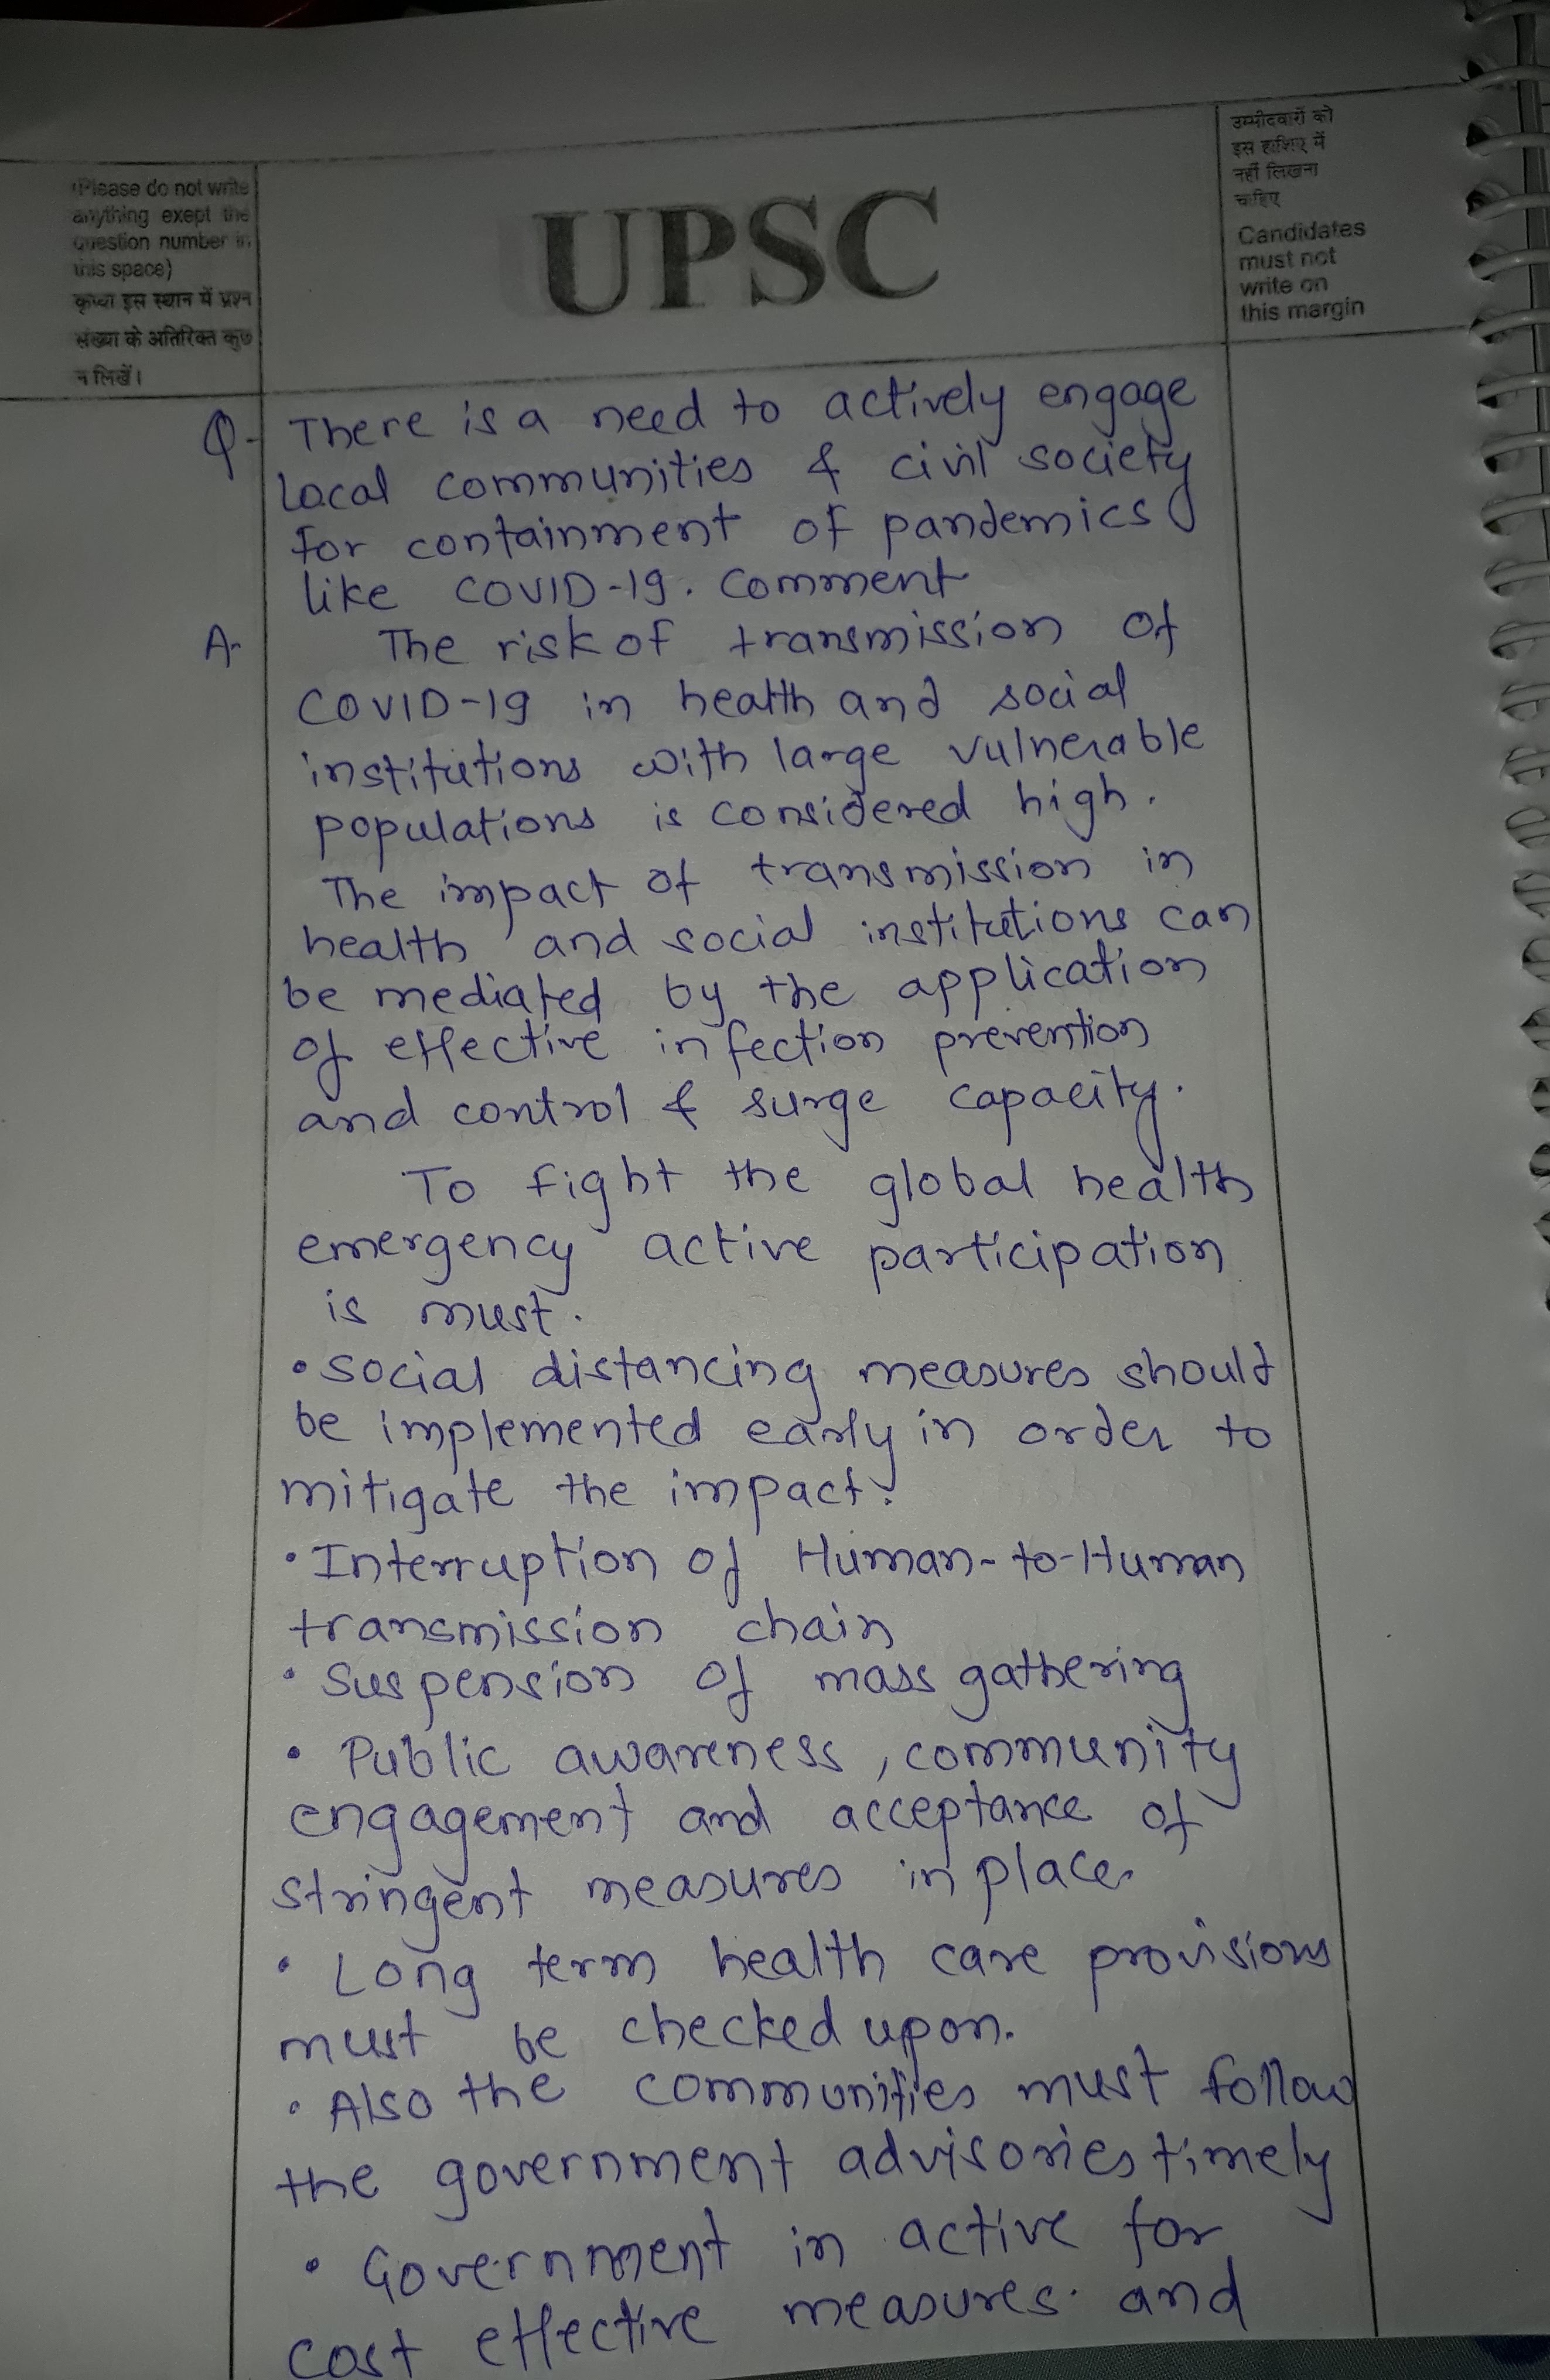 (Please do not write
anything exept the
question number in
this space)
कृपया इस स्थान में प्रश्न
संख्या के अतिरिक्त कुछ
न लिखें।
UPSC
उम्मीदवारों को
इस हाशिए में
नहीं लिखना
चाहिए
Candidates
must not
write on
this margin
Q- There is a need to actively engage
Local communities & civil society
for containment of pandemics
like COVID-19. Comment
A- The risk of transmission of
COVID-19 in health and social
institutions with large vulnerable
populations is considered high.
The impact of transmission in
health and social institutions can
be mediated by the application
of effective infection prevention
and control & surge capacity.
To fight the global health
emergency active participation
is must.
• Social distancing measures should
be implemented early in order to
mitigate the impact.
• Interruption of Human-to-Human
transmission chain
• Suspension of mass gathering
• Public awareness, community
engagement and acceptance of
stringent measures in place.
• Long term health care provisions
must be checked upon.
• Also the communities must follow
the government advisories timely
• Government in active for
cost effective measures. and